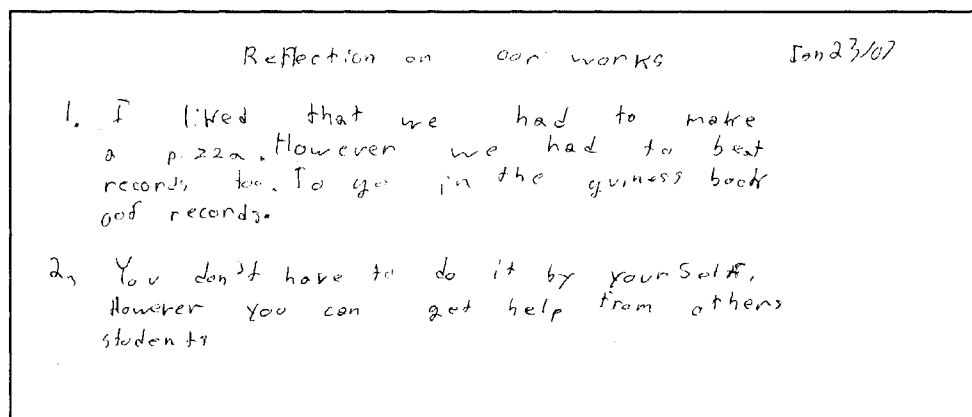 Reflection on oor works Jan 23/07
1. I liked that we had to make
a pizza. However we had to beat
records too. To go in the guiness book
oof records.
2, You don't have to do it by your self,
However you can get help from others
students